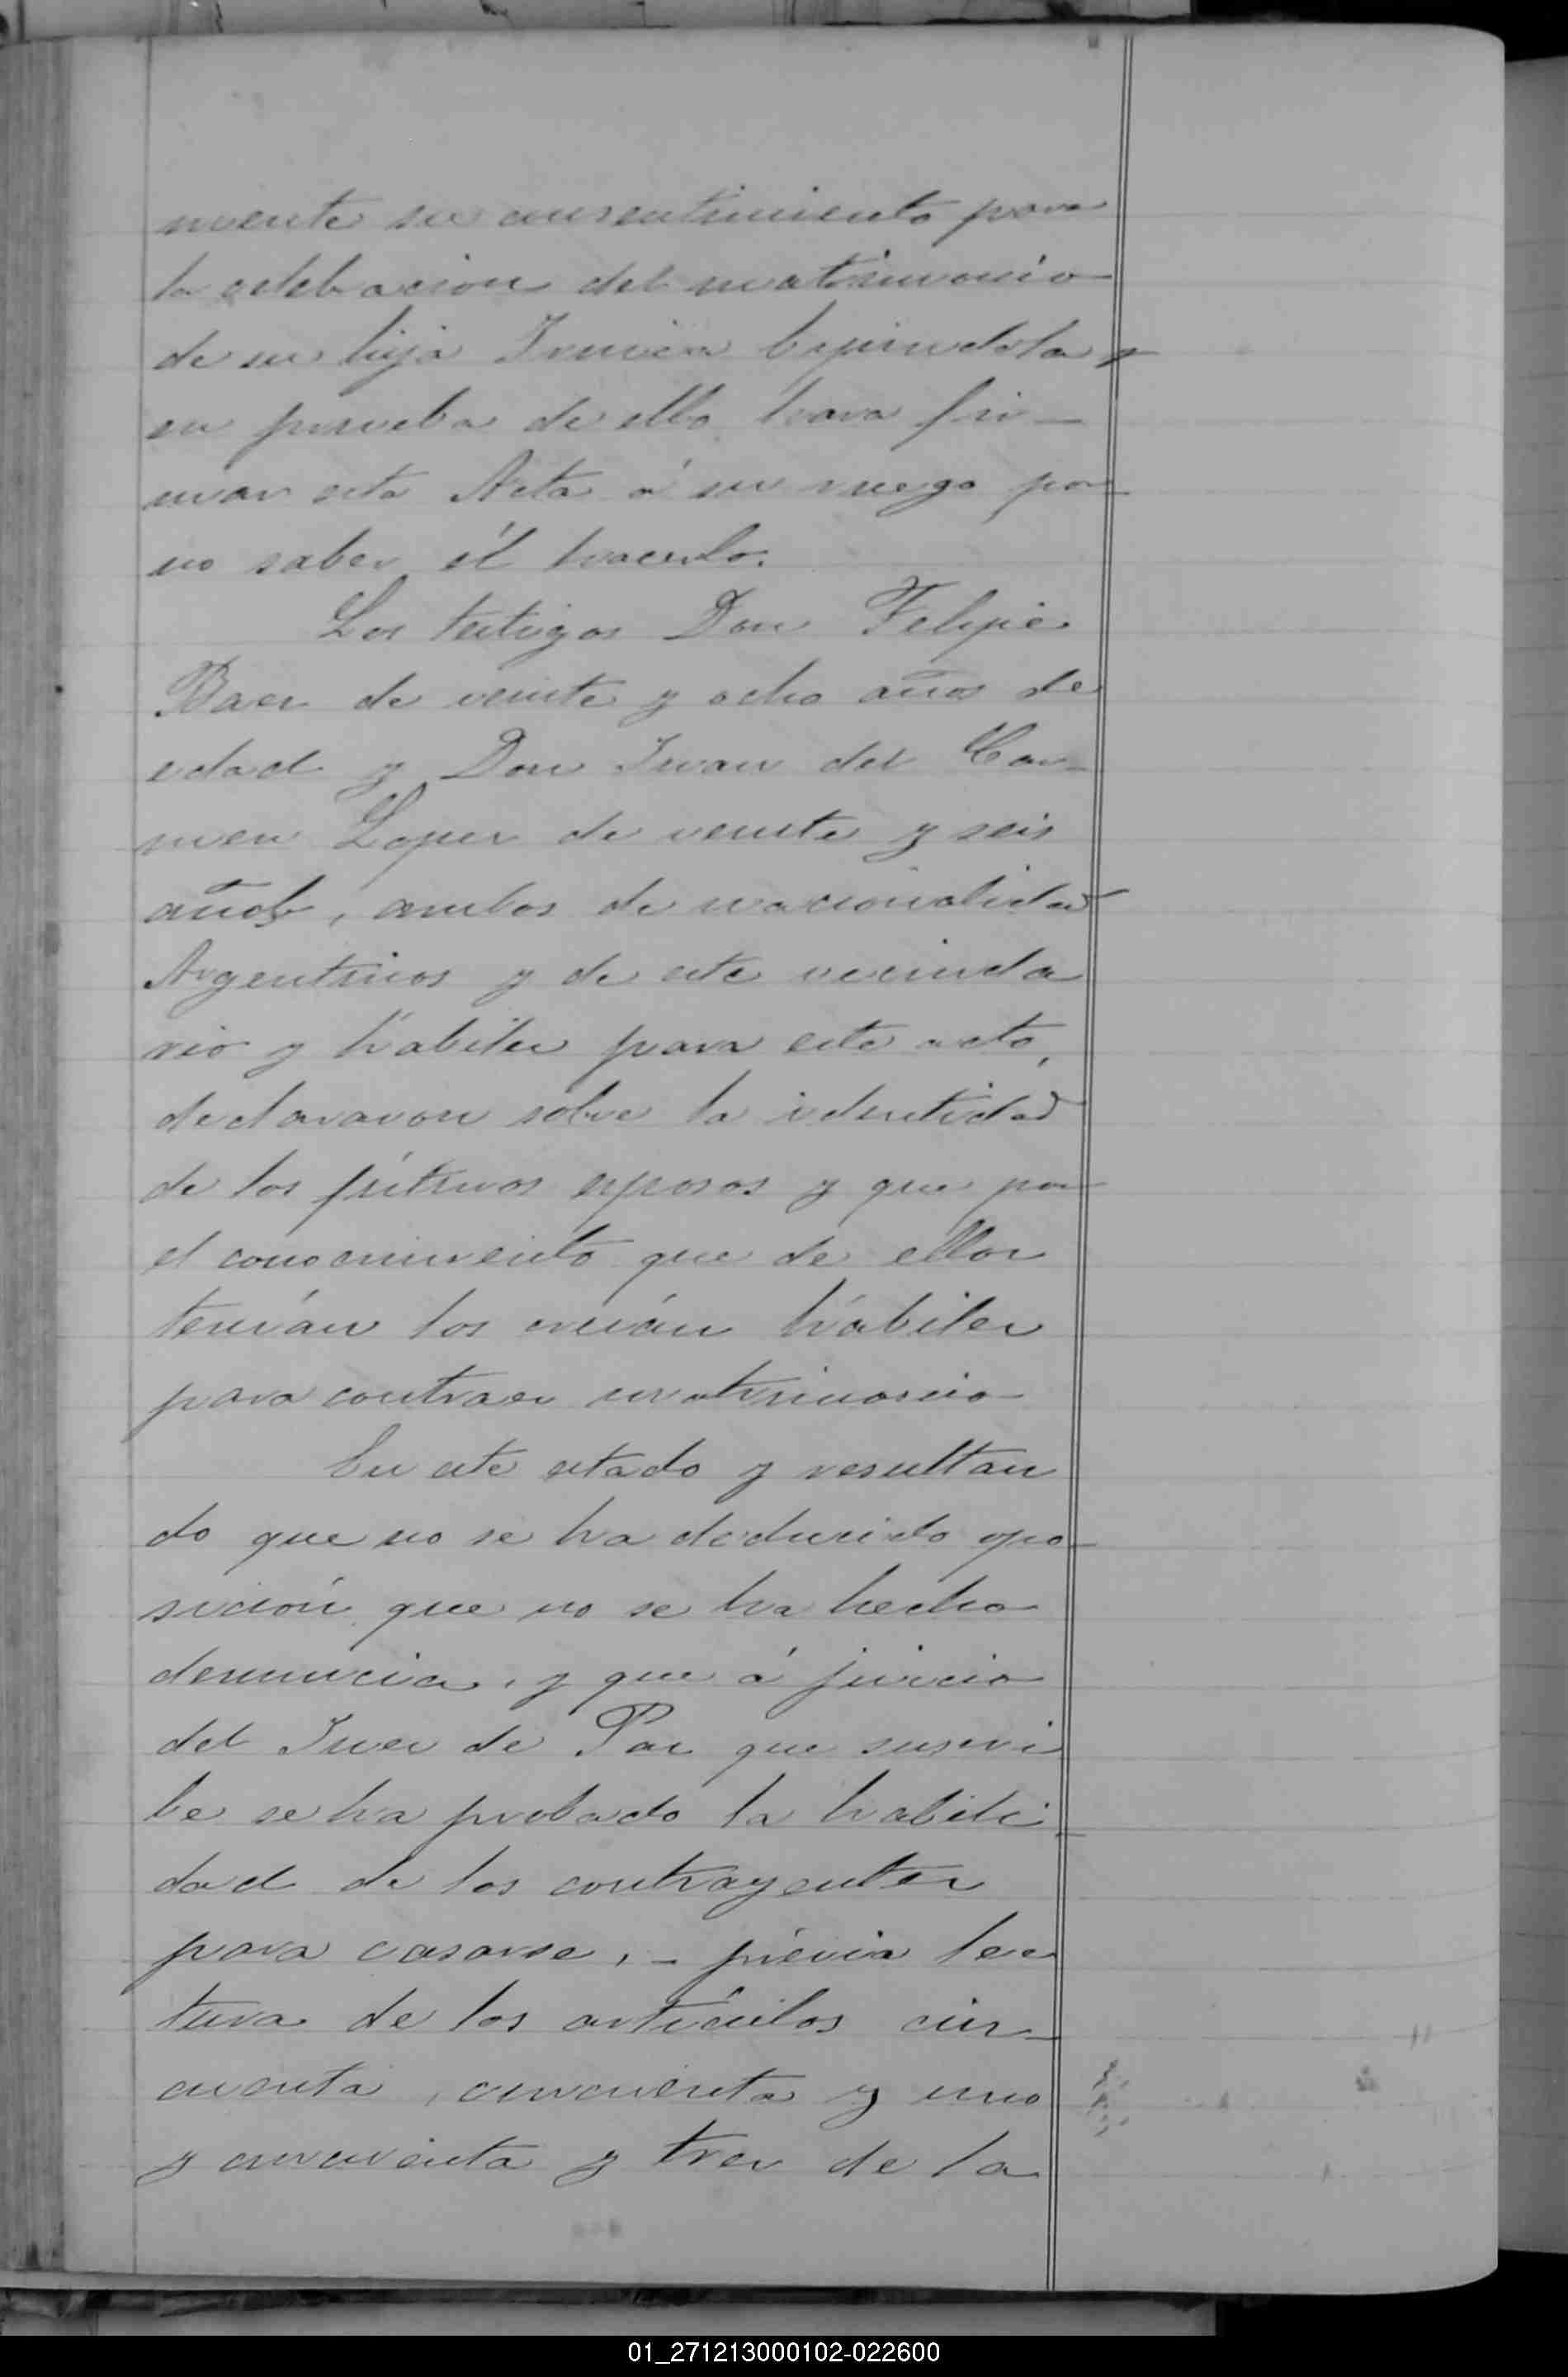 mente su consentimiento para
la celebracion del matrimonio
de su hija Juana Espindola y
en prueba de ello hara fir-
mar esta Acta á su ruego por
no saber él hacerlo.
Los testigos Don Felipe
Baer de veinte y ocho años de
edad y Don Juan del Car-
men Lopez de veinte y seis
años, ambos de nacionalidad
Argentinos y de este vecinda
rio y hábiles para este acto,
declararon sobre la identidad
de los fúturos esposos y que por
el conocimiento que de ellos
tenían los creían hábiles
para contraer matrimonio
En este estado y resultan
do que no se ha deducido opo-
sición que no se ha hecho
denuncia, y que á juicio
del Juez de Paz que suscri
be se ha probado la habili-
dad de los contrayentes
para casarse, - prévia lec
tura de los artículos cin-
cuenta, cincuenta y uno
y cincuenta y tres de la
01_271213000102-022600